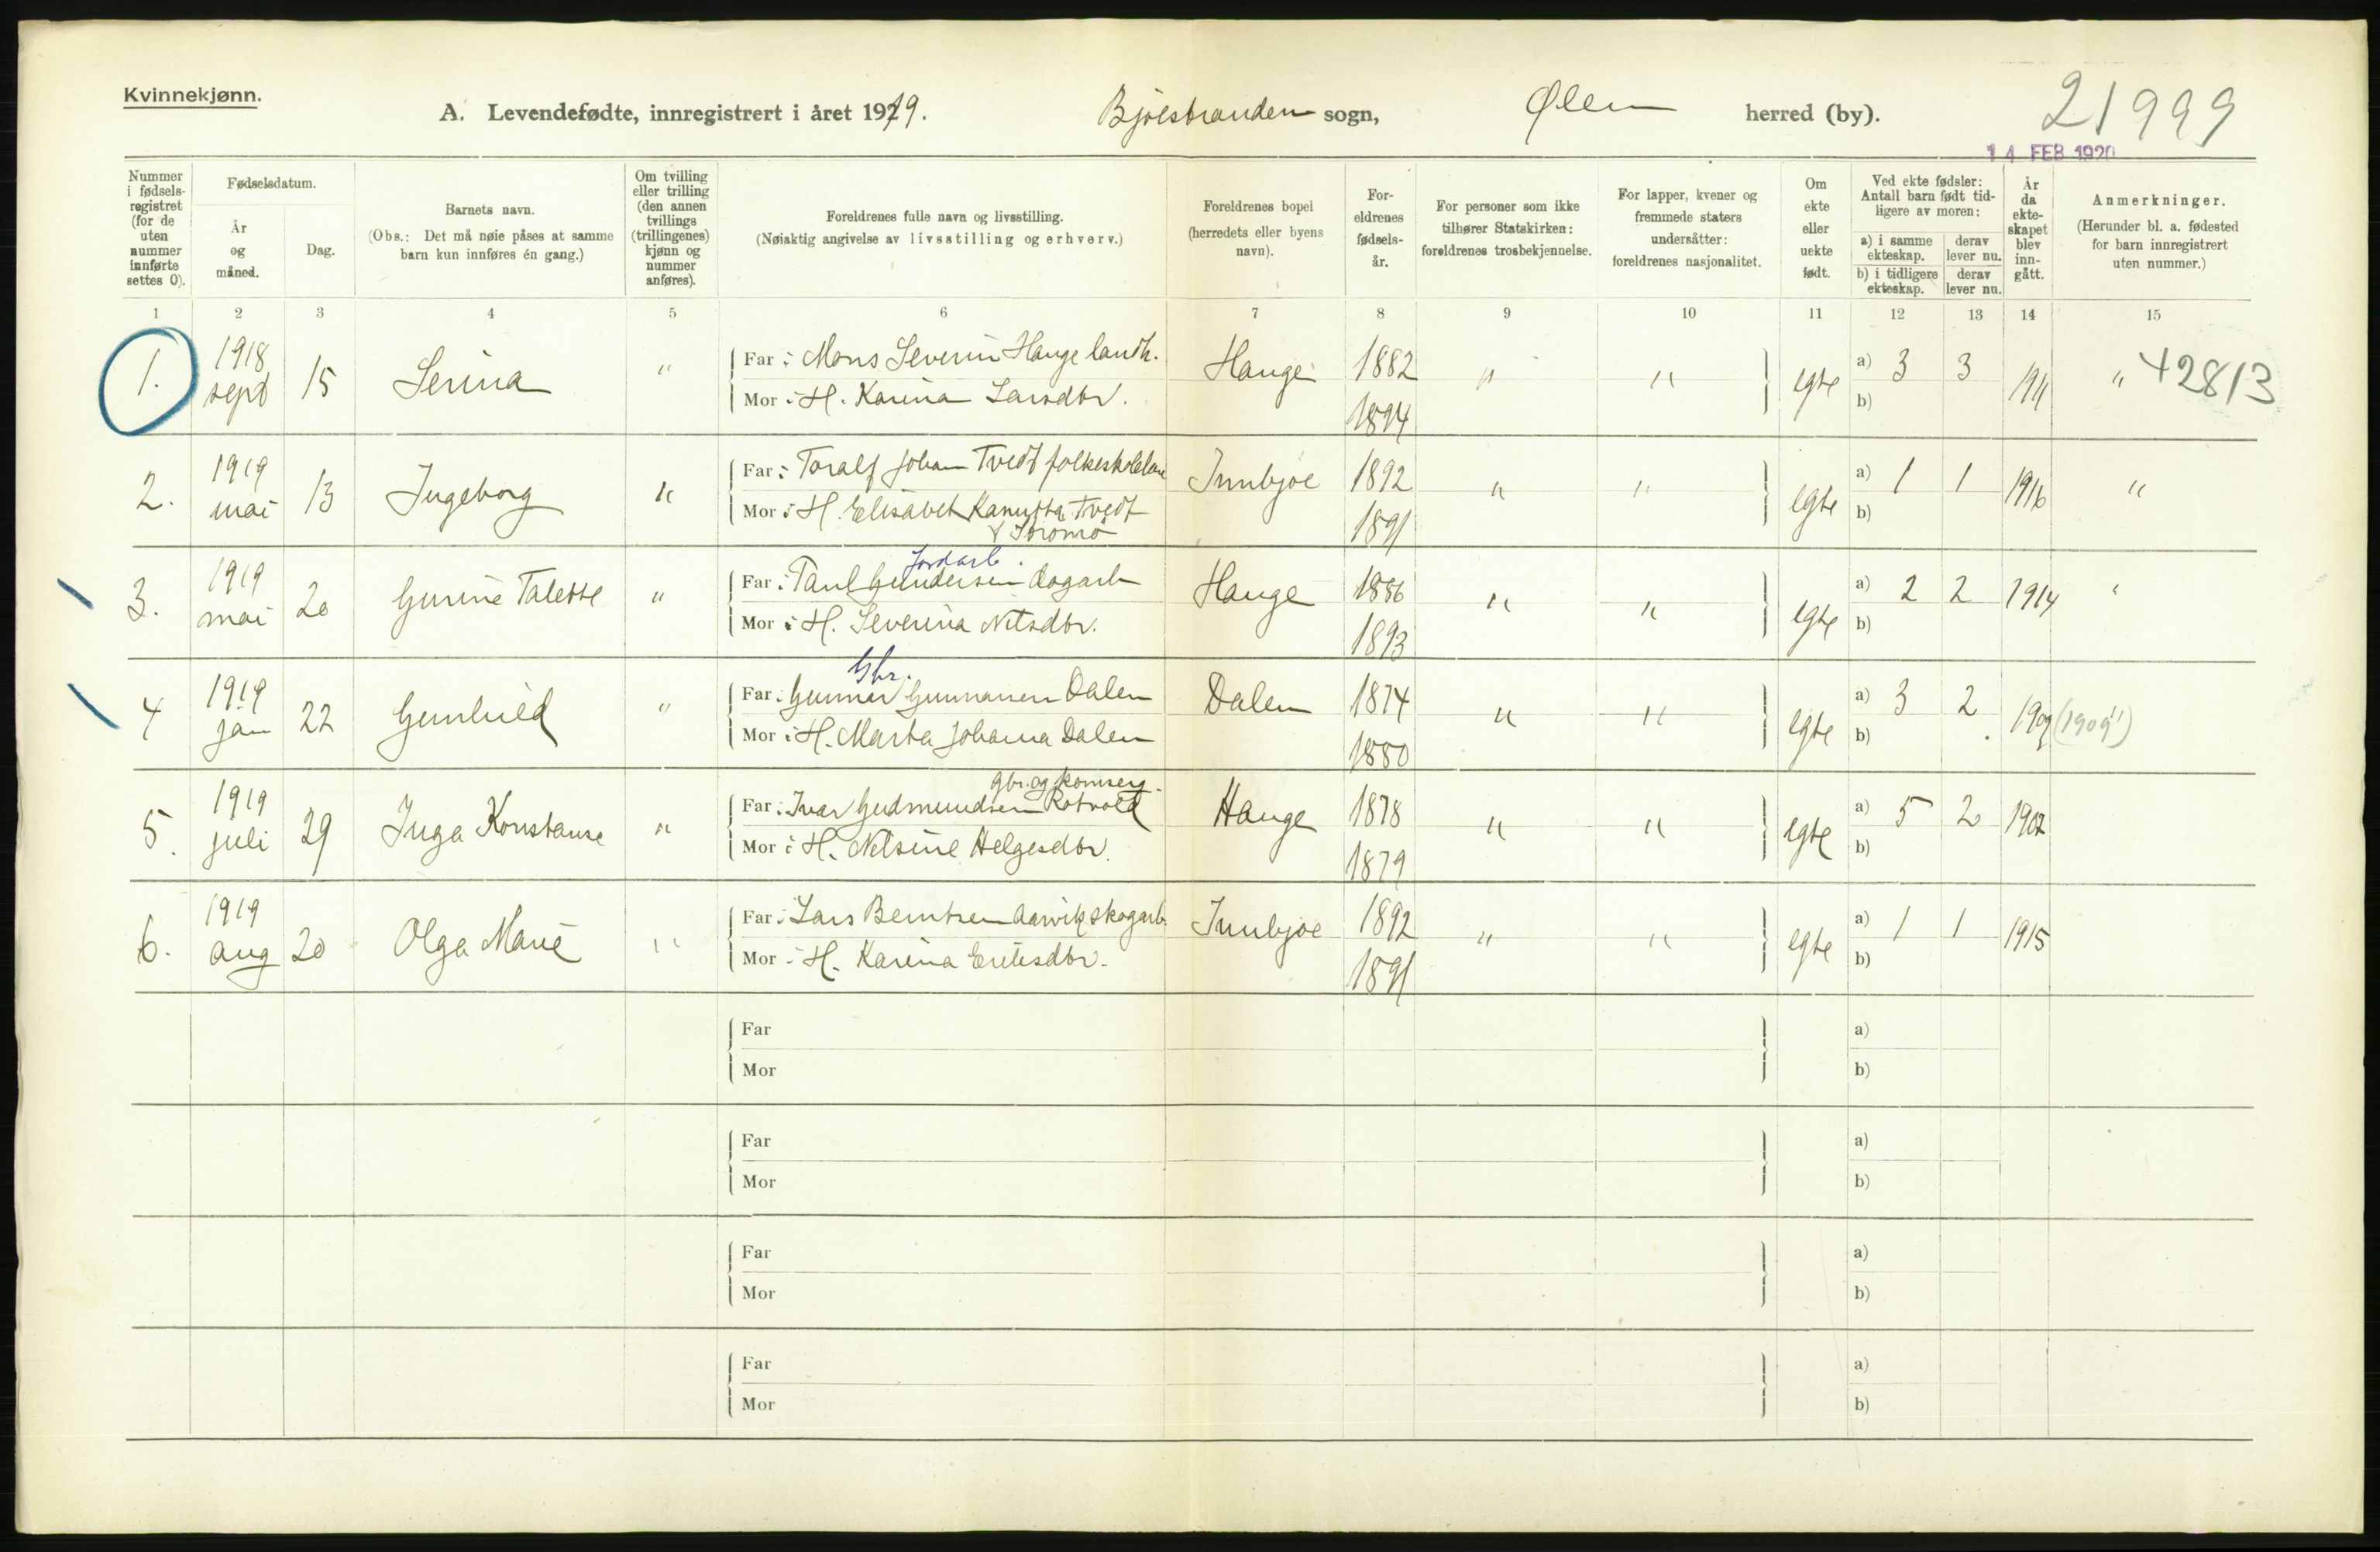 Kvinnekjønn.
A. Levendefødte, innregistrert i året 1919. Bjoesstranden sogn, Ølen herred (by). 21999
14 FEB 1920
Nummer i fødsels-registret (for de uten nummer innførte settes 0).
Fødselsdatum.
År og måned.
Dag.
Barnets navn.
(Obs.: Det må nøie påses at samme barn kun innføres én gang.)
Om tvilling eller trilling (den annen tvillings (trillingenes) kjønn og nummer anføres).
Foreldrenes fulle navn og livsstilling.
(Nøiaktig angivelse av livsstilling og erhverv.)
Foreldrenes bopel (herredets eller byens navn).
For-eldrenes fødsels-år.
For personer som ikke tilhører Statskirken: foreldrenes trosbekjennelse.
For lapper, kvener og fremmede staters undersåtter: foreldrenes nasjonalitet.
Om ekte eller uekte født.
Ved ekte fødsler: Antall barn født tid-ligere av moren:
a) i samme ekteskap. derav lever nu.
b) i tidligere ekteskap. derav lever nu.
År da ekte-skapet blev inn-gått.
Anmerkninger.
(Herunder bl. a. fødested for barn innregistrert uten nummer.)
1 2 3 4 5 6 7 8 9 10 11 12 13 14 15
1. 1918 sept 15 Serina " Far: Mons Severin Hauge landh. Hauge 1882 " " egte a) 3 3 1911 " 42813
Mor: H. Karina Larsdtr. 1894 b)
2. 1919 mai 13 Ingeborg " Far: Toralf Johan Tvedt Innbjoe 1892 " " egte a) 1 1 1916 "
Mor: H. Elisabet Kanutta Tvedt 1891 b)
Jordarb.
3. 1919 mai 20 Gurine Talette " Far: Paul Gundersen dagarb Hauge 1886 " " egte a) 2 2 1914 "
Mor: H. Severina Nilsdtr. 1893 b)
Gbr.
4 1919 jan 22 Gunhild " Far: Gunnar Gunnarsen Dalen Dalen 1874 " " egte a) 3 2 1909 (1909")
Mor: H. Marta Johanna Dalen 1880 b)
gbr. og
5. 1919 juli 29 Inga Konstanse " Far: Ivar Gudmundsen Rotvold Hauge 1878 " " egte a) 5 2 1902
Mor: H. Nilsine Helgesdtr. 1879 b)
6. 1919 aug 20 Olga Marie " Far: Lars Berntsen Aarvik skogarb. Innbjoe 1892 " " egte a) 1 1 1915
Mor: H. Karina Eriksdtr. 1891 b)
Far a)
Mor b)
Far a)
Mor b)
Far a)
Mor b)
Far a)
Mor b)